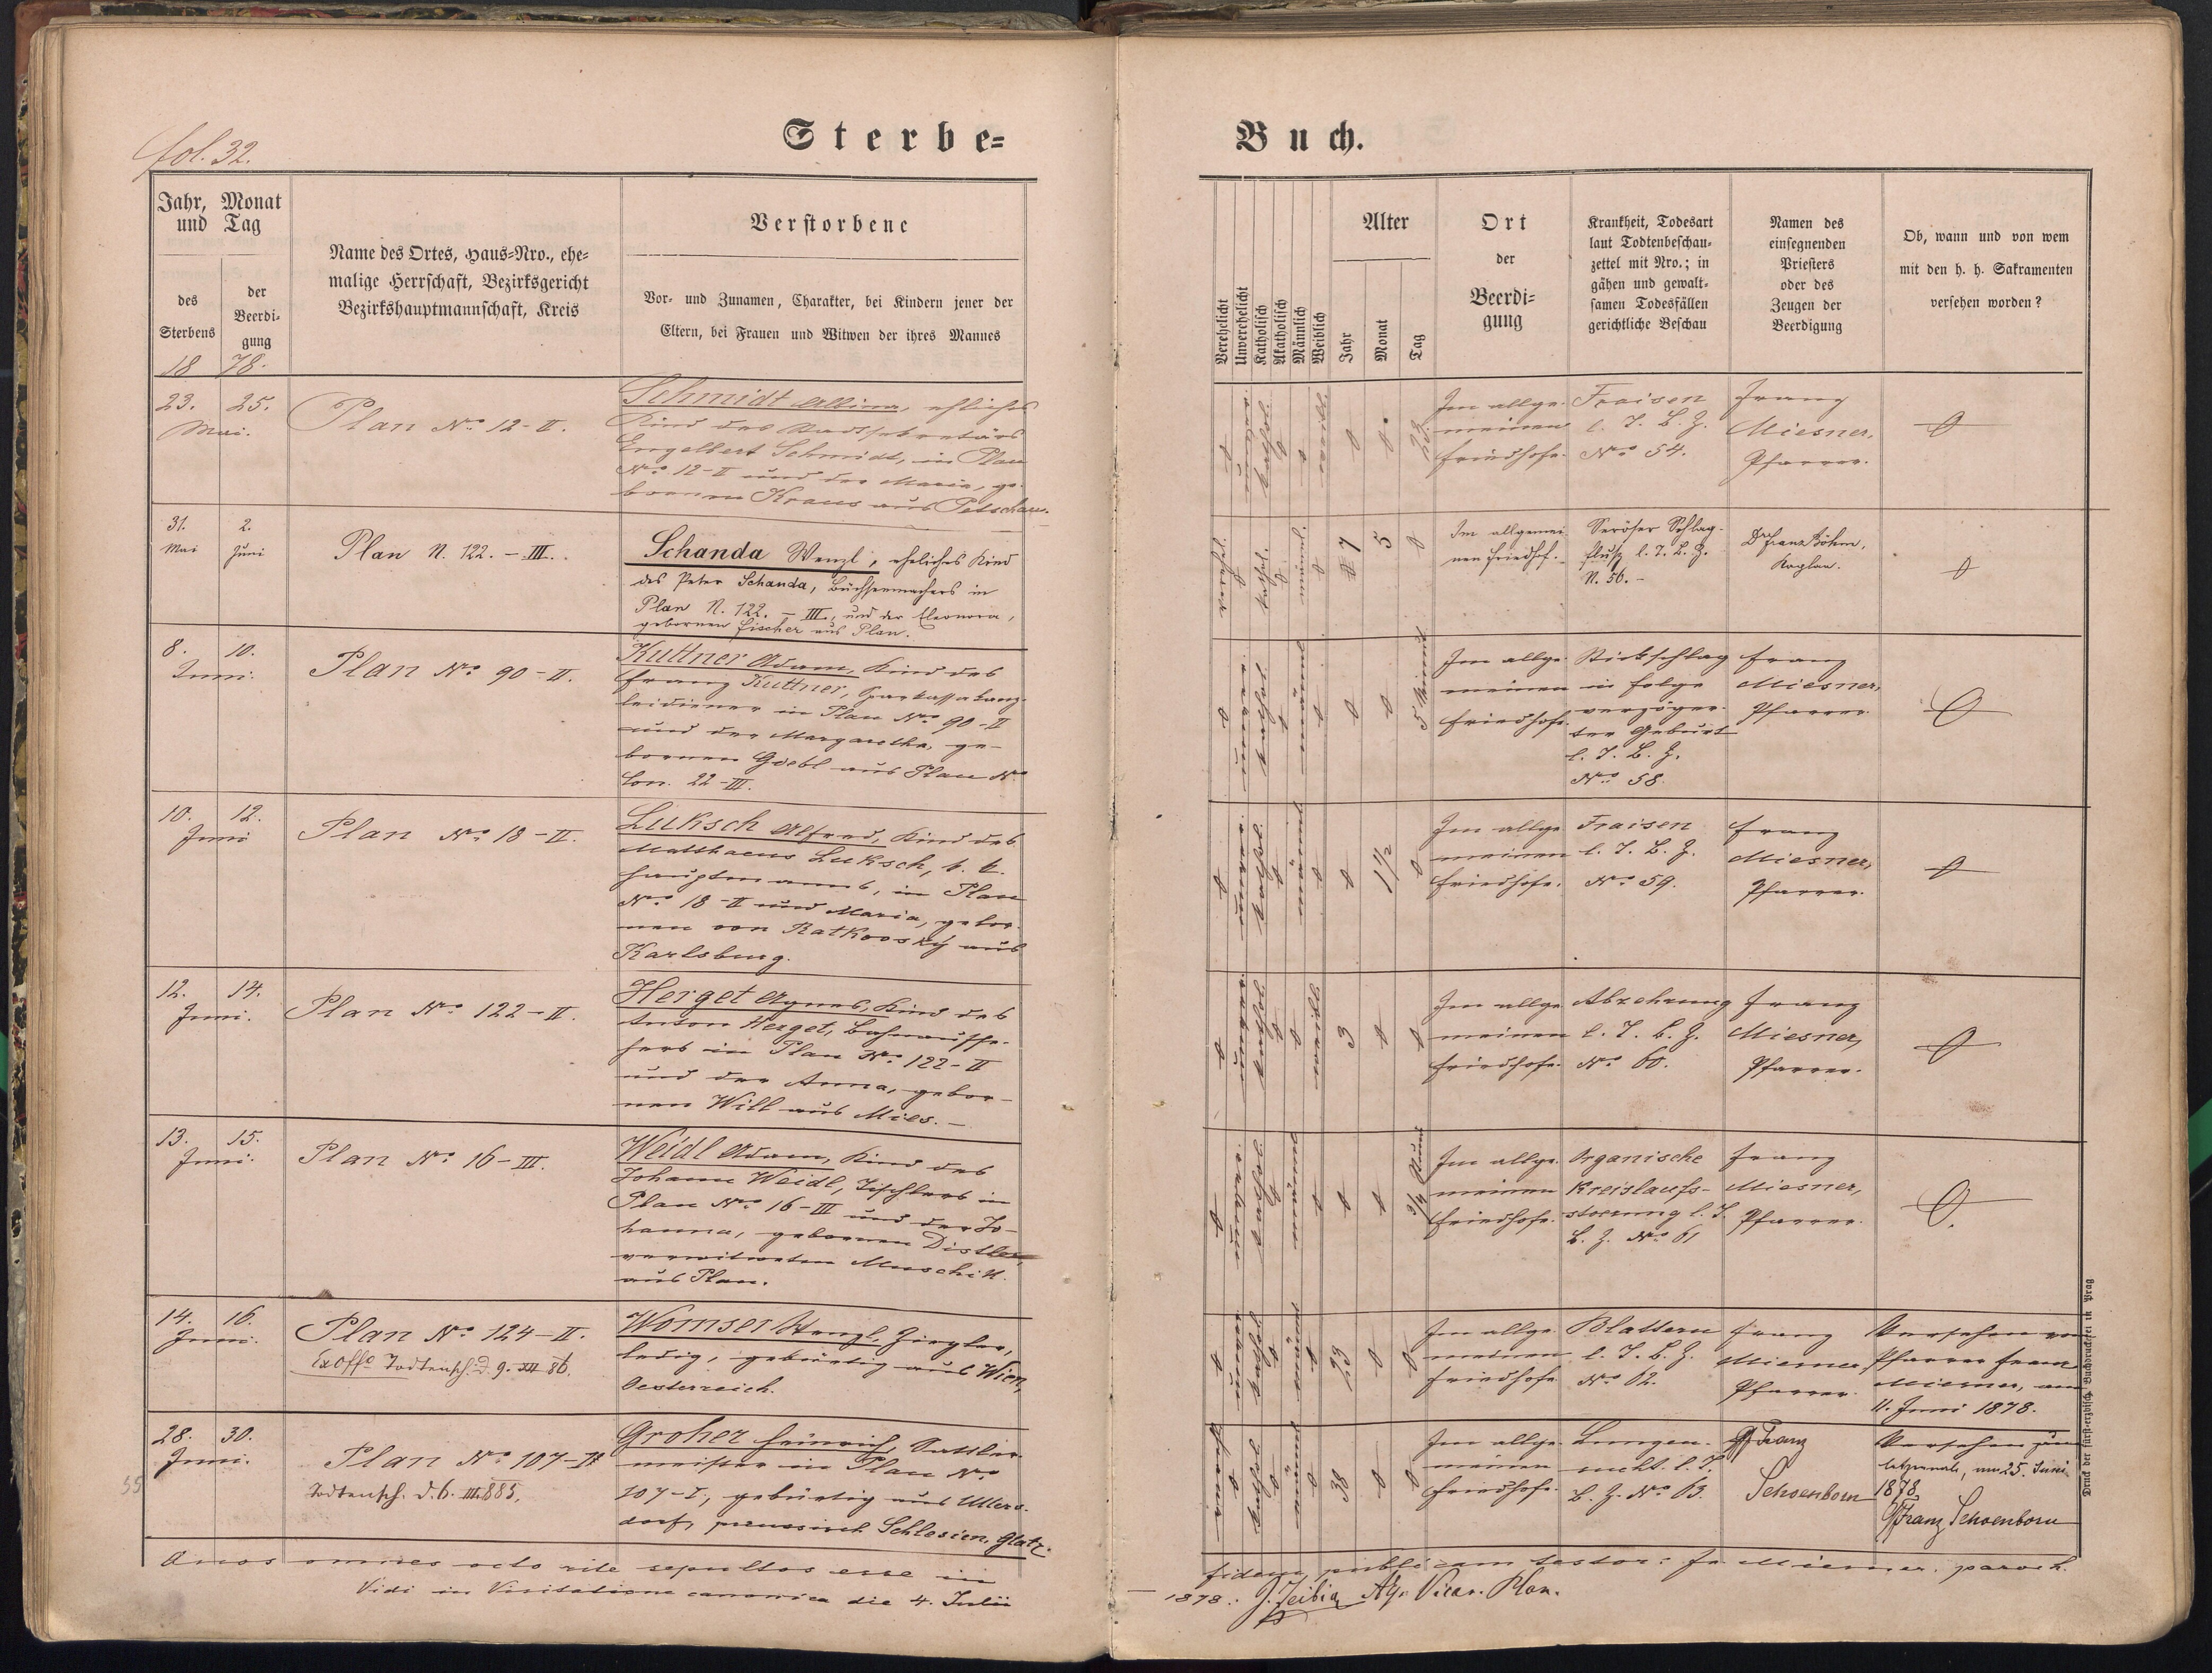 fol. 32.
Sterbe-
Buch.
Jahr, Monat
und Tag
des
Sterbens
der
Beerdi-
gung
Name des Ortes, Haus-Nro., ehe-
malige Herrschaft, Bezirksgericht
Bezirkshauptmannschaft, Kreis
Verstorbene
Vor- und Zunamen, Charakter, bei Kindern jener der
Eltern, bei Frauen und Witwen der ihres Mannes
Verehelicht
Unverehelicht
Katholisch
Akatholisch
Männlich
Weiblich
Alter
Jahr
Monat
Tag
Ort
der
Beerdi-
gung
Krankheit, Todesart
laut Todtenbeschau-
zettel mit Nro.; in
gähen und gewalt-
samen Todesfällen
gerichtliche Beschau
Namen des
einsegnenden
Priesters
oder des
Zeugen der
Beerdigung
Ob, wann und von wem
mit den h. h. Sakramenten
versehen worden?
18 78.
23. 25.
Mai.
Plan No. 12-II.
Schmidt Albina, ehliches
Kind des Stadtsekretärs
Engelbert Schmidt, in Plan
No. 12-II und der Maria, ge-
bornen Kraus aus Petschau.
0 kathol. 0 0 weibl. 0 0 23.
Im allge-
meinen
Friedhofe.
Fraisen
l. T. B. Z.
No. 54.
Franz
Miesner,
Pfarrer.
0
31. 2.
Mai Juni
Plan N. 122. - III.
Schanda Wenzl, eheliches Kind
des Peter Schanda, Büchsenmachers in
Plan N. 122. - III, und der Eleonora,
gebornen Fischer aus Plan.
kathol. 0 0 7 5 0
Im allgemei-
nen Friedhof.
Seröser Schlag-
fluß l. T. B. Z.
N. 56. -
Dr. Franz Böhm,
Kaplan.
0
8. 10.
Juni.
Plan No. 90-II.
Kuttner Adam, Kind des
Franz Kuttner, Sparkassakanz-
leidiener in Plan No. 90-II
und der Margaretha, ge-
bornen Goebl aus Plan No.
Con. 22-III.
0 kathol. 0 männl. 0 0 0 5 Minut.
Im allge-
meinen
Friedhofe.
Stickschlag
in Folge
verzöger-
ter Geburt
l. T. B. Z.
No. 58.
Franz
Miesner,
Pfarrer.
0
10. 12.
Juni
Plan No. 18-II.
Luksch Alfred, Kind des
Matthaeus Luksch, k. k.
Hauptmanns, in Plan
No. 18-II und Maria, gebor-
nen von Ratkovsky aus
Karlsburg.
0 kathol. 0 männl. 0 0 1½ 0
Im allge-
meinen
Friedhofe.
Fraisen
l. T. B. Z.
No. 59.
Franz
Miesner,
Pfarrer.
0
12. 14.
Juni.
Plan No. 122-II.
Herget Agnes, Kind des
Anton Herget, Bahnaufse-
hers in Plan No. 122-II
und der Anna, gebor-
nen Will aus Mies. -
0 kathol. 0 0 weibl. 3 0 0
Im allge-
meinen
Friedhofe.
Abzehrung
l. T. B. Z.
No. 60.
Franz
Miesner,
Pfarrer.
0
13. 15.
Juni.
Plan No. 16-III.
Weidl Adam, Kind des
Johann Weidl, Tischlers in
Plan No. 16-III und der Jo-
hanna, gebornen Distler,
verwitweten Muschik
aus Plan.
0 kathol. 0 männl. 0 0 0 ¾ Stund
Im allge-
meinen
Friedhofe.
Organische
Kreislaufs-
stoerung l. T.
B. Z. No. 61
Franz
Miesner,
Pfarrer.
0.
14. 16.
Juni.
Plan No. 124-II.
Ex offo Todtensch. d. 9. XII. 86.
Womser Wenzl, Ziegler,
ledig, gebürtig aus Wien,
Oesterreich.
0 kathol. 0 männl. 0 23 0 0
Im allge-
meinen
Friedhofe
Blattern
l. T. B. Z.
No. 62.
Franz
Miesner,
Pfarrer.
Versehen von
Pfarrer Franz
Miesner, am
11. Juni 1878.
28. 30.
Juni.
Plan No. 107-II
Todtensch. d. 6. III. 885.
Groher Heinrich, Sattler-
meister in Plan No.
107-I, gebürtig aus Ullers-
dorf, preussisch Schlesien, Glatz.
0 kathol. 0 männl. 0 38 0 0
Im allge-
meinen
Friedhofe.
Lungen-
sucht l. T.
B. Z. No. 63.
Franz
Schoenborn
Versehen zum
letztenmale, am 25. Juni
1878
Franz Schoenborn
Druck der fürst-erzbisch. Buchdruckerei in Prag
omnes octo rite sepultos esse in
fidem publicam testor: Fr. Miesner, paroch.
Vidi in Visitatione canonica die 4. Julii
1878. Vicar. Plan.